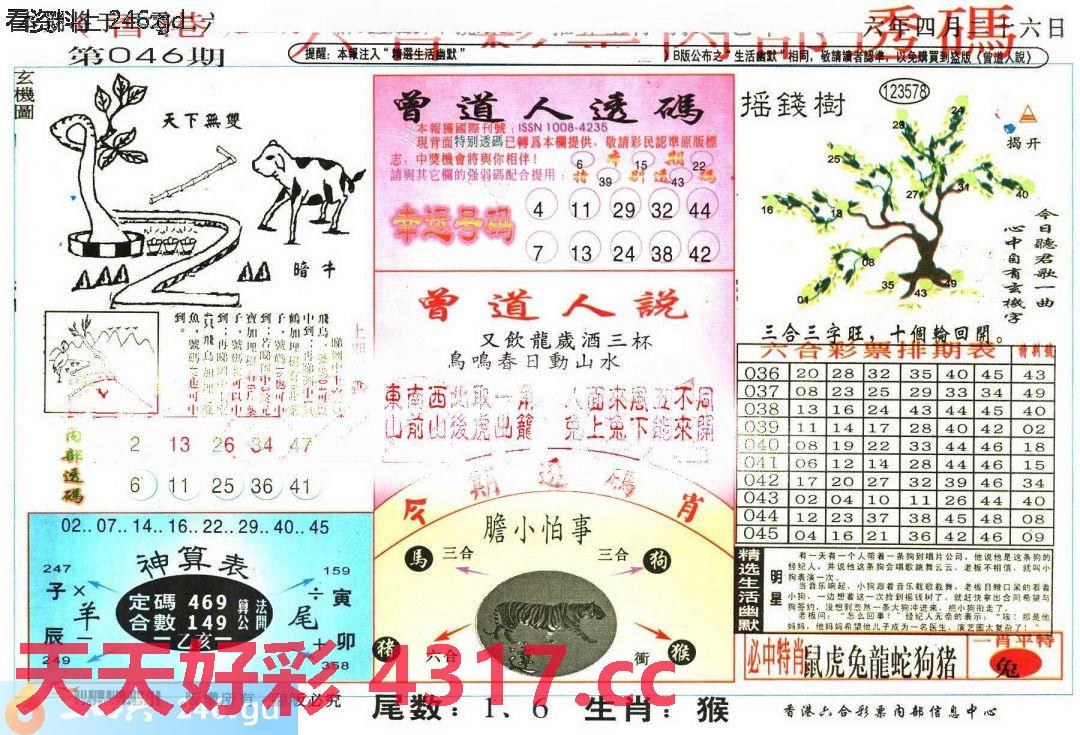 看资料上 246.gd
六年四月二十六日
第046期
提醒：本報注入“精選生活幽默”
B版公布之“生活幽默”相同，敬請讀者認準，以免購買到盜版《曾道人說》
透碼
玄機圖
天下無雙
暗牛
曾道人透碼
本報獲國際刊號：ISSN 1008-4235
現背面特別透碼已轉爲本欄提供，敬請彩民認準原版標
志，中獎機會將與你相伴！
請與其它欄的强弱碼配合提用：
本期
特别透碼
6 15 22
39 43
幸运号码
4 11 29 32 44
7 13 24 38 42
摇錢樹
123578
揭开
24
28
25
27 31 40
16 13
08
01 35 43 49
今日聽君歌一曲
心中自有玄機字
三合三字旺，十個輪回開。
曾道人説
又飲龍歲酒三杯
鳥鳴春日動山水
東南西北取一用
山前山後虎出籠
人面來風五不同
兔上兔下能來開
内部透碼
2 13 26 34 47
6 11 25 36 41
六合彩票排期表
036 20 28 32 35 40 45 43
037 08 23 25 29 33 34 49
038 13 16 24 43 44 45 40
039 11 14 17 28 40 42 02
040 08 19 22 33 44 46 18
041 06 12 14 28 44 46 15
042 17 20 27 32 39 46 34
043 02 04 10 11 26 44 40
044 12 23 37 38 45 48 08
045 04 16 21 36 42 46 09
02..07..14..16..22..29..40..45
神算表
247
159
子×
÷寅
羊
尾
定碼 469
合數 149
算公
法開
乙亥
辰－
＋卯
249
358
今期透碼肖
膽小怕事
馬 三合
三合 狗
豬 六合
衝 猴
精选生活幽默
明星
有一天有一个人带着一条狗到唱片公司，他说他是这条狗的
经纪人，并说他这条狗会唱歌跳舞云云，老板不相信，就叫小
狗表演一次。
当音乐响起，小狗跟着音乐载歌载舞，老板目瞪口呆的看着
小狗，一边想着这一次捡到摇钱树了，就赶快拿出合同希望与
狗签约，没想到忽然一条大狗冲进来，把小狗衔走了。
老板问：“怎么回事？”经纪人无奈的表示：“唉！那是他
妈妈，他妈妈希望他儿子成为一名医生，演艺圈太复杂了！”
必中特肖
鼠虎兔龍蛇狗猪
一肖平特
兔
天天好彩 4317.cc
246.gd
版權所有
必究
尾数：1、6 生肖：猴
香港六合彩票内部信息中心